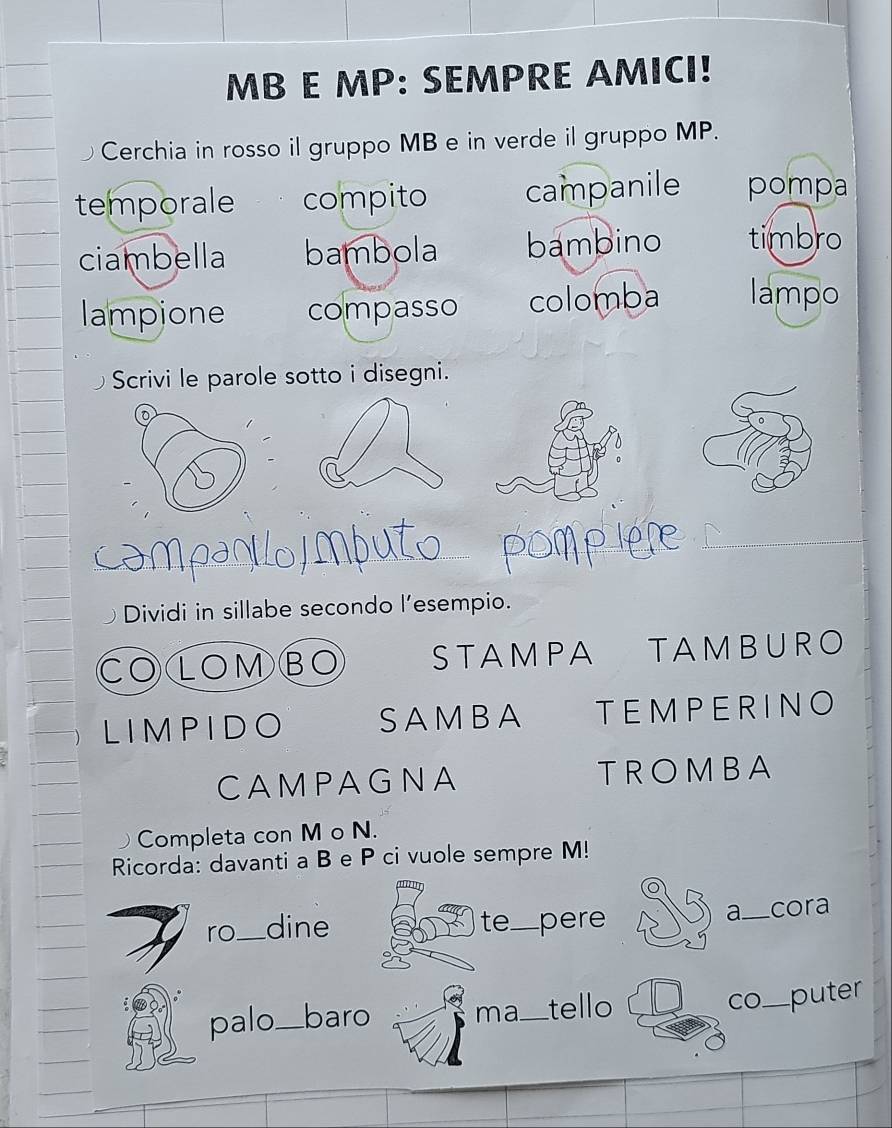 MB E MP: SEMPRE AMICI!
Cerchia in rosso il gruppo MB e in verde il gruppo MP.
temporale compito campanile pompa
ciambella bambola bambino timbro
lampione compasso colomba lampo
Scrivi le parole sotto i disegni.
imbuto pompiere
Dividi in sillabe secondo l'esempio.
COLOMBO STAMPA TAMBURO
LIMPIDO SAMBA TEMPERINO
CAMPAGNA TROMBA
Completa con M o N.
Ricorda: davanti a B e P ci vuole sempre M!
ro__dine te__pere a__cora
palo__baro ma__tello co__puter